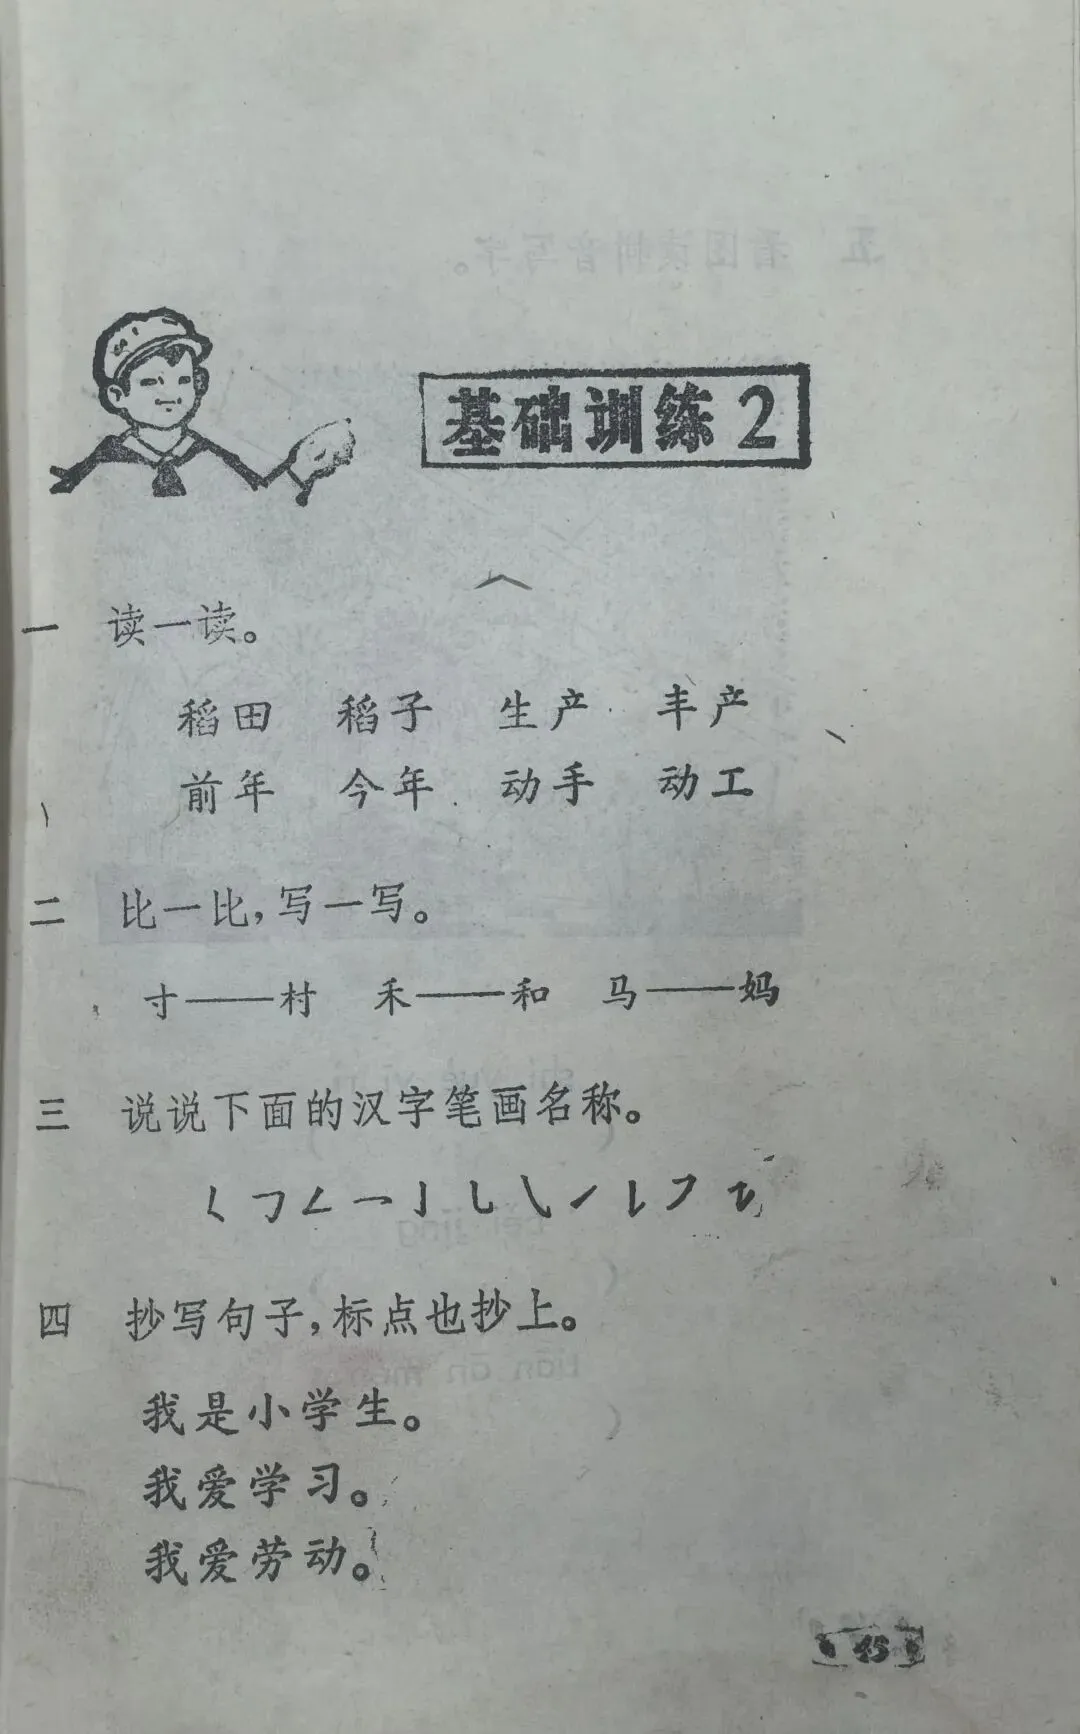 基础训练2
一 读一读。
稻田 稻子 生产 丰产
前年 今年 动手 动工
二 比一比，写一写。
寸——村 禾——和 马——妈
三 说说下面的汉字笔画名称。
四 抄写句子，标点也抄上。
我是小学生。
我爱学习。
我爱劳动。
45